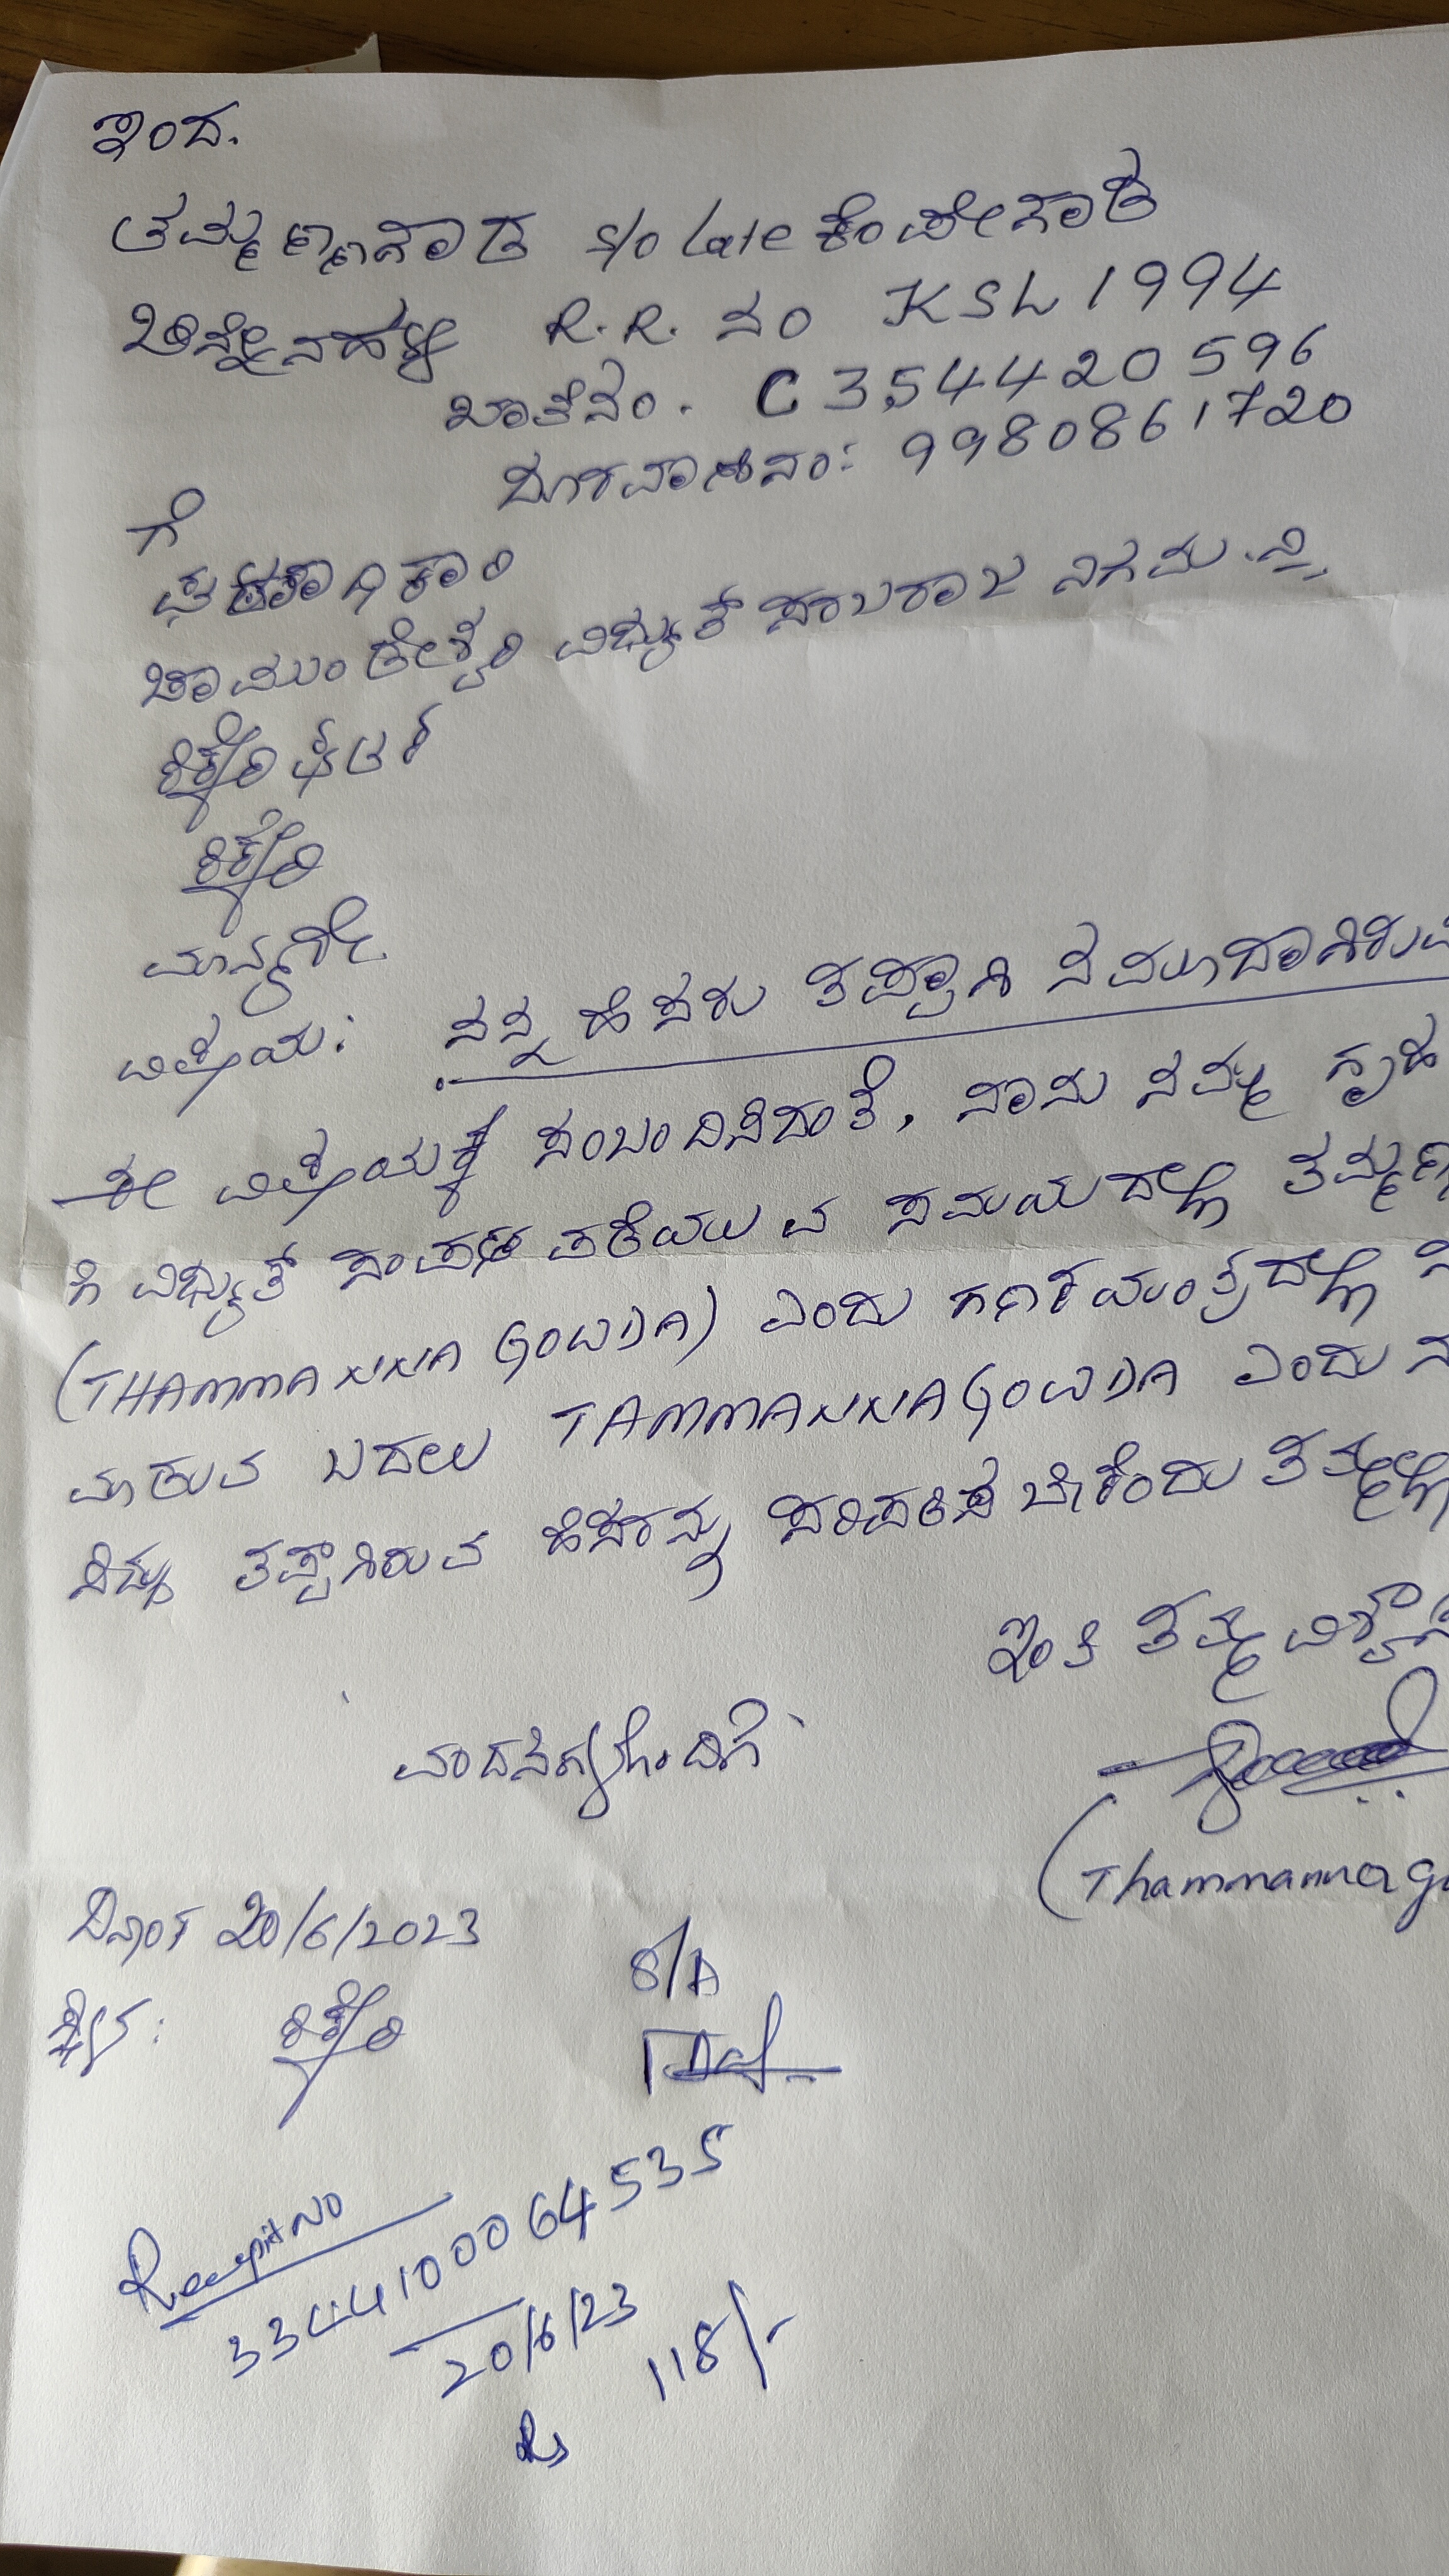 ಇಂದ.
ತಮ್ಮಣ್ಣಗೌಡ s/o late ಕೆಂಪೇಗೌಡ
ಚಿನ್ನೇನಹಳ್ಳಿ R.R. ನಂ KSL 1994
ಖಾತೆನಂ. C 354420596
ದೂರವಾಣಿನಂ: 9980861720
ಗೆ
ಚಾಮುಂಡೇಶ್ವರಿ ವಿದ್ಯುತ್ ಸರಬರಾಜು ನಿಗಮ. ನಿ,
ಕಿಕ್ಕೇರಿ
ಕಿಕ್ಕೇರಿ
ಮಾನ್ಯರೇ
ವಿಷಯ: ನನ್ನ ಹೆಸರು ತಪ್ಪಾಗಿ ನಮೂದಾಗಿರುವ
ಈ ವಿಷಯಕ್ಕೆ ಸಂಬಂದಿಸಿದಂತೆ, ನಾನು ನಮ್ಮ ಗೃಹ
ಗೆ ವಿದ್ಯುತ್ ಸಂಪರ್ಕ ಪಡೆಯುವ ಸಮಯದಲ್ಲಿ ತಮ್ಮಣ್ಣ
(THAMMANNA GOWDA) ಎಂದು ಗಣಕಯಂತ್ರದಲ್ಲಿ
ಮಾಡುವ ಬದಲು TAMMANNAGOWDA ಎಂದು
ತಪ್ಪಾಗಿರುವ ಹೆಸರನ್ನು ಸರಿಪಡಿಸ ಬೇಕೆಂದು ತಮ್ಮಲ್ಲಿ
ಇಂತಿ ತಮ್ಮ ವಿಶ್ವಾಸಿ
ವಂದನೆಗಳೊಂದಿಗೆ
(Thammanna Go
ದಿನಾಂಕ 20/6/2023
ಸ್ಥಳ: ಕಿಕ್ಕೇರಿ
S/A
Receipt NO
3344100064535
20/6/23
Rs 118/-